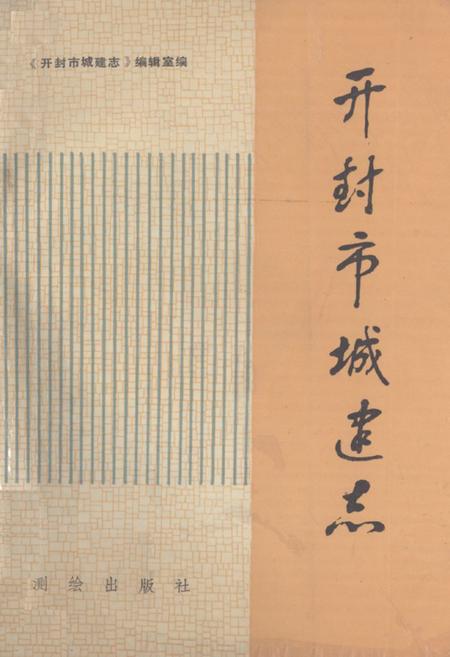 《开封市城建志》编辑室编
开封市城建志
测绘出版社